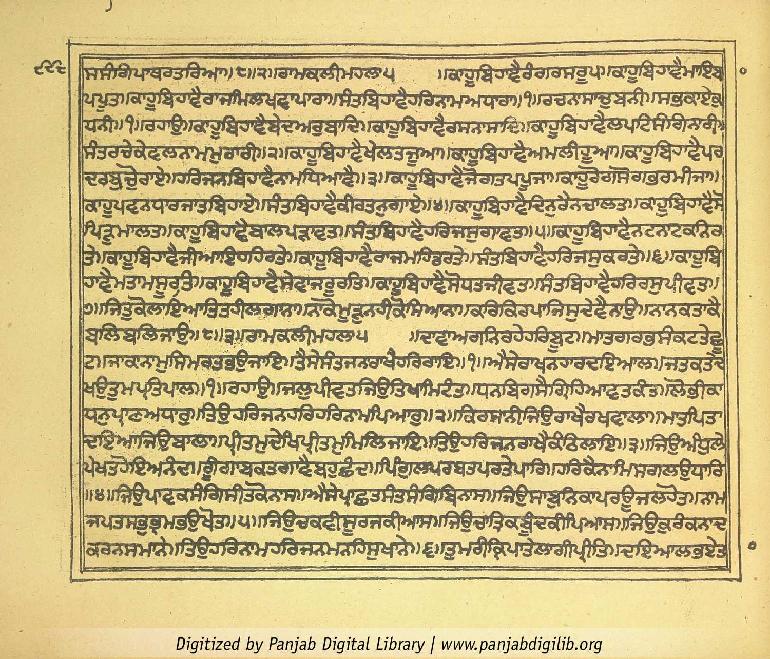 ੯੯੮
ਸਸੰਗਿਪਾਬਰਤਰਿਆ॥੮॥੨॥ਰਾਮਕਲੀਮਹਲਾ੫ ॥ਕਾਹੂਬਿਹਾਵੈਰੰਗਰਸਰੂਪ॥ਕਾਹੂਬਿਹਾਵੈਮਾਇਬਾ
ਪਪੂਤ॥ਕਾਹੂਬਿਹਾਵੈਰਾਜਮਿਲਖਵਾਪਾਰਾ॥ਸੰਤਬਿਹਾਵੈਹਰਿਨਾਮਅਧਾਰਾ॥੧॥ਰਚਨਾਸਾਚੁਬਨੀ॥ਸਭਕਾਏਕੁ
ਧਨੀ॥੧॥ਰਹਾਉ॥ਕਾਹੂਬਿਹਾਵੈਬੇਦਅਰੁਬਾਦਿ॥ਕਾਹੂਬਿਹਾਵੈਰਸਨਾਸਾਦਿ॥ਕਾਹੂਬਿਹਾਵੈਲਪਟਿਸੰਗਿਨਾਰੀ॥
ਸੰਤਰਚੇਕੇਵਲਨਾਮਮੁਰਾਰੀ॥੨॥ਕਾਹੂਬਿਹਾਵੈਖੇਲਤਜੂਆ॥ਕਾਹੂਬਿਹਾਵੈਅਮਲੀਹੂਆ॥ਕਾਹੂਬਿਹਾਵੈਪਰ
ਦਰਬੁਚੋੁਰਾਏ॥ਹਰਿਜਨਬਿਹਾਵੈਨਾਮਧਿਆਏ॥੩॥ਕਾਹੂਬਿਹਾਵੈਜੋਗਤਪਪੂਜਾ॥ਕਾਹੂਰੋਗਸੋਗਭਰਮੀਜਾ॥
ਕਾਹੂਪਵਨਧਾਰਜਾਤਬਿਹਾਏ॥ਸੰਤਬਿਹਾਵੈਕੀਰਤਨੁਗਾਏ॥੪॥ਕਾਹੂਬਿਹਾਵੈਦਿਨੁਰੈਨਚਾਲਤ॥ਕਾਹੂਬਿਹਾਵੈਸੋ
ਪਿੜੁਮਾਲਤ॥ਕਾਹੂਬਿਹਾਵੈਬਾਲਪੜਾਵਤ॥ਸੰਤਬਿਹਾਵੈਹਰਿਜਸੁਗਾਵਤ॥੫॥ਕਾਹੂਬਿਹਾਵੈਨਟਨਾਟਕਨਿਰ
ਤੇ॥ਕਾਹੂਬਿਹਾਵੈਜੀਆਇਹਹਿਰਤੇ॥ਕਾਹੂਬਿਹਾਵੈਰਾਜਮਹਿਡਰਤੇ॥ਸੰਤਬਿਹਾਵੈਹਰਿਜਸੁਕਰਤੇ॥੬॥ਕਾਹੂਬਿ
ਹਾਵੈਮਤਾਮਸੂਰਤਿ॥ਕਾਹੂਬਿਹਾਵੈਸੇਵਾਜਰੂਰਤਿ॥ਕਾਹੂਬਿਹਾਵੈਸੋਧਤਜੀਵਤ॥ਸੰਤਬਿਹਾਵੈਹਰਿਰਸੁਪੀਵਤ॥
੭॥ਜਿਤੁਕੋਲਾਇਆਤਿਤਹੀਲਗਾਨਾ॥ਨਾਕੋਮੂੜੁਨਹੀਕੋਸਿਆਨਾ॥ਕਰਿਕਿਰਪਾਜਿਸੁਦੇਵੈਨਾਉ॥ਨਾਨਕਤਾਕੈ
ਬਲਿਬਲਿਜਾਉ॥੮॥੩॥ਰਾਮਕਲੀਮਹਲਾ੫ ॥ਦਾਵਾਅਗਨਿਰਹੇਹਰਿਬੂਟ॥ਮਾਤਗਰਭਸੰਕਟਤੇਛੂ
ਟ॥ਜਾਕਾਨਾਮੁਸਿਮਰਤਭਉਜਾਇ॥ਤੈਸੇਸੰਤਜਨਾਰਾਖੈਹਰਿਰਾਇ॥੧॥ਐਸੇਰਾਖਨਹਾਰਦਇਆਲ॥ਜਤਕਤਦੇ
ਖਉਤੁਮਪ੍ਰਤਿਪਾਲ॥੧॥ਰਹਾਉ॥ਜਲੁਪੀਵਤਜਿਉਤਿਖਾਮਿਟੰਤ॥ਧਨਬਿਗਸੈਗ੍ਰਿਹਿਆਵਤਕੰਤ॥ਲੋਭੀਕਾ
ਧਨੁਪ੍ਰਾਣਅਧਾਰੁ॥ਤਿਉਹਰਿਜਨਹਰਿਹਰਿਨਾਮਪਿਆਰੁ॥੨॥ਕਿਰਸਾਨੀਜਿਉਰਾਖੈਰਖਵਾਲਾ॥ਮਾਤਪਿਤਾ
ਦਇਆਜਿਉਬਾਲਾ॥ਪ੍ਰੀਤਮੁਦੇਖਿਪ੍ਰੀਤਮੁਮਿਲਿਜਾਇ॥ਤਿਉਹਰਿਜਨਰਾਖੈਕੰਠਿਲਾਇ॥੩॥ਜਿਉਅੰਧੁਲੇ
ਪੇਖਤਹੋਇਅਨੰਦਾ॥ਗੂੰਗਾਬਕਤਗਾਵੈਬਹੁਛੰਦਾ॥ਪਿੰਗੁਲਪਰਬਤਪਰਤੇਪਾਰਿ॥ਹਰਿਕੈਨਾਮਿਸਗਲਉਧਾਰਿ
॥੪॥ਜਿਉਪਾਵਕਸੰਗਿਸੀਤਕੋਨਾਸ॥ਐਸੇਪ੍ਰਾਛਤਸੰਤਸੰਗਿਬਿਨਾਸ॥ਜਿਉਸਾਬੁਨਿਕਾਪਰਊਜਲਹੋਤ॥ਨਾਮ
ਜਪਤਸਭੁਭ੍ਰਮਭਉਖੋਤ॥੫॥ਜਿਉਚਕਵੀਸੂਰਜਕੀਆਸ॥ਜਿਉਚਾਤ੍ਰਿਕਬੂੰਦਕੀਪਿਆਸ॥ਜਿਉਕੁਰੰਕਨਾਦ
ਕਰਨਸਮਾਨੇ॥ਤਿਉਹਰਿਨਾਮਹਰਿਜਨਮਨਹਿਸੁਖਾਨੇ॥੬॥ਤੁਮਰੀਕ੍ਰਿਪਾਤੇਲਾਗੀਪ੍ਰੀਤਿ॥ਦਇਆਲਭਏਤ
Digitized by Panjab Digital Library | www.panjabdigilib.org